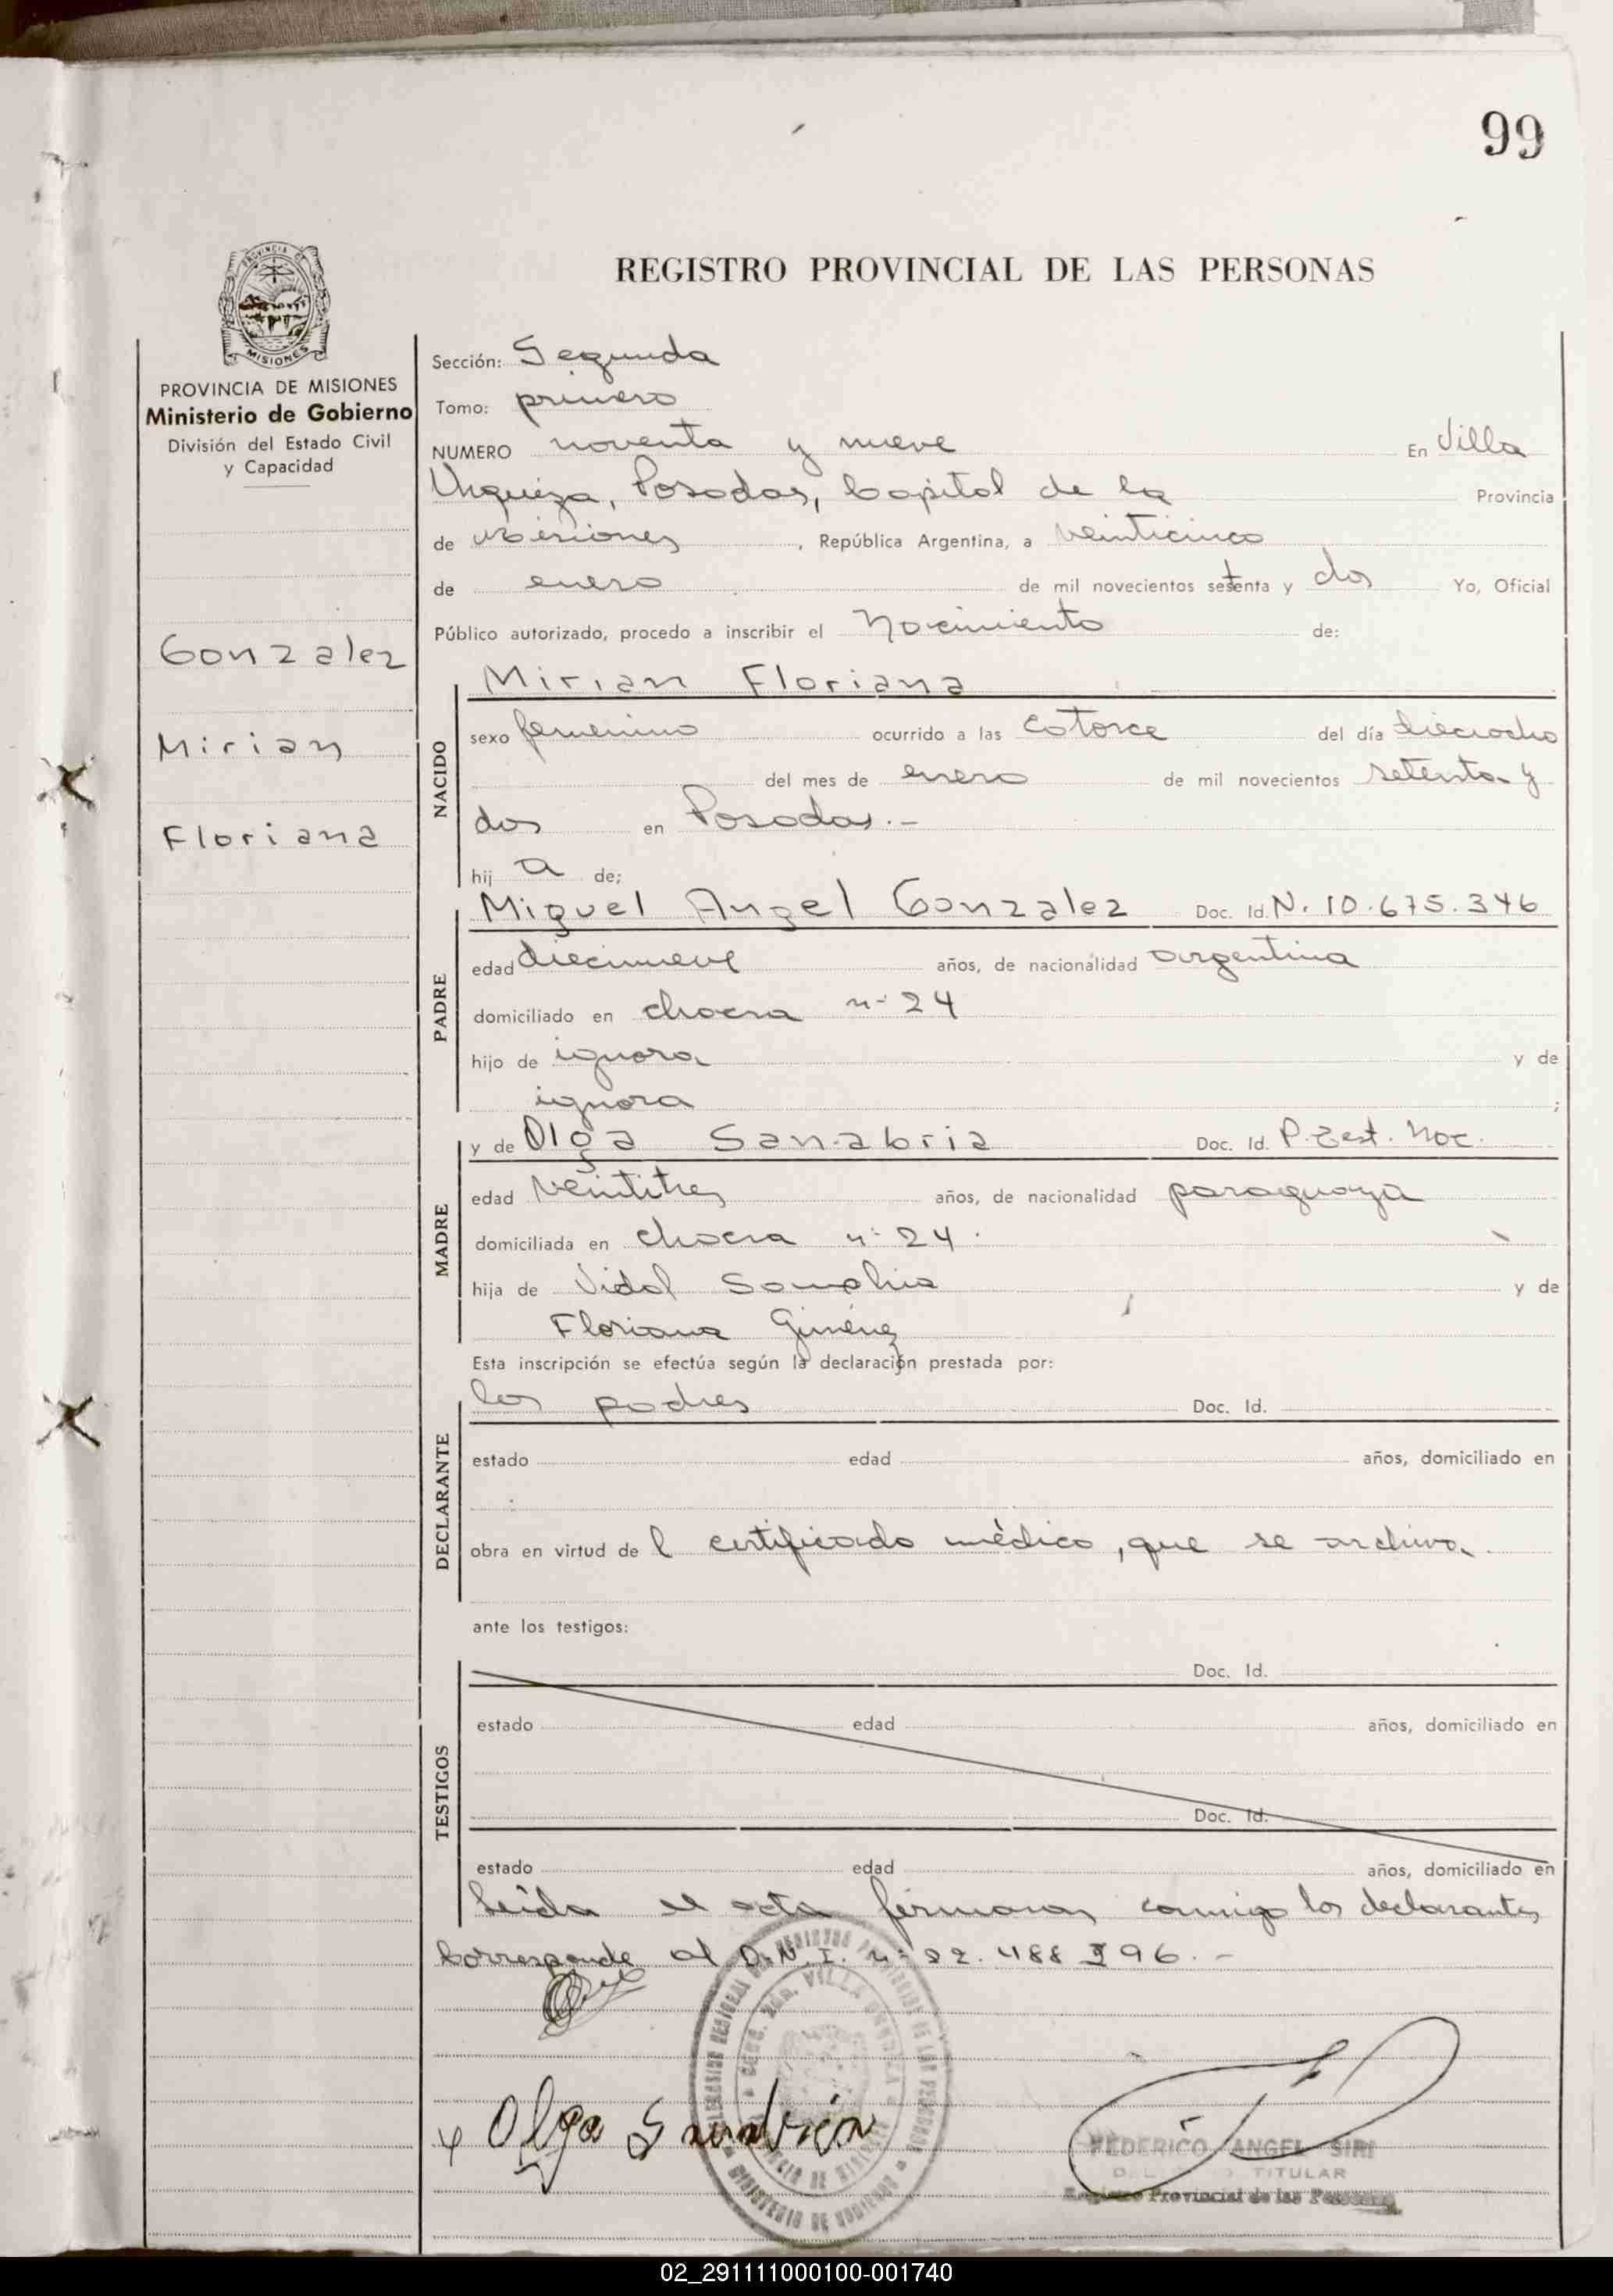 99
REGISTRO PROVINCIAL DE LAS PERSONAS
PROVINCIA DE
MISIONES
PROVINCIA DE MISIONES
Ministerio de Gobierno
División del Estado Civil
y Capacidad
Gonzalez
Mirian
Floriana
Sección: Segunda
Tomo: primero
NUMERO noventa y nueve En Villa
Urquiza, Posadas, Capital de la Provincia
de Misiones, República Argentina, a veinticinco
de enero de mil novecientos setenta y dos Yo, Oficial
Público autorizado, procedo a inscribir el Nacimiento de:
Mirian Floriana
NACIDO
sexo femenino ocurrido a las catorce del día dieciocho
del mes de enero de mil novecientos setenta y
dos en Posadas.-
hij a de;
PADRE
Miguel Angel Gonzalez Doc. Id. N. 10.675.346
edad diecinueve años, de nacionalidad argentina
domiciliado en chacra n- 24
hijo de ignora y de
ignora ;
MADRE
y de Olga Sanabria Doc. Id. Nac.
edad veintitres años, de nacionalidad paraguaya
domiciliada en chacra n- 24.
hija de Vidal Sanabria y de
Floriana Giménez
Esta inscripción se efectúa según la declaración prestada por:
DECLARANTE
los padres Doc. Id.
estado edad años, domiciliado en
obra en virtud de l certificado médico, que se archiva.
ante los testigos:
TESTIGOS
Doc. Id.
estado edad años, domiciliado en
Doc. Id.
estado edad años, domiciliado en
Leida el acta firman conmigo los declarantes
Corresponde al D.N.I. n- 22.488 96.-
Olga Sanabria
FEDERICO ANGEL SIRI
TITULAR
Registro Provincial de las Personas
02_291111000100-001740